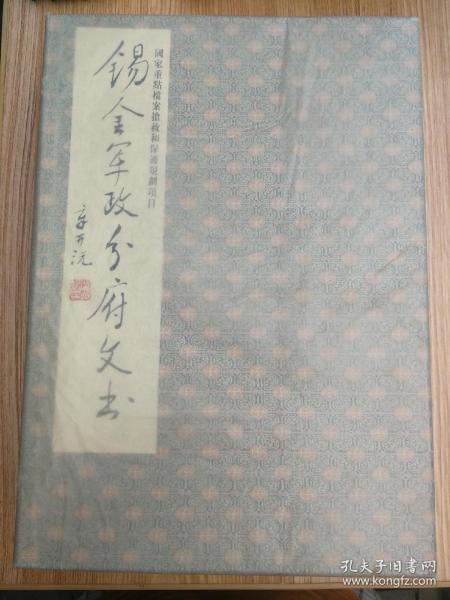 國家重點檔案搶救和保護規劃項目
锡金军政分府文书
章开沅
孔夫子旧书网
www.kongfz.com